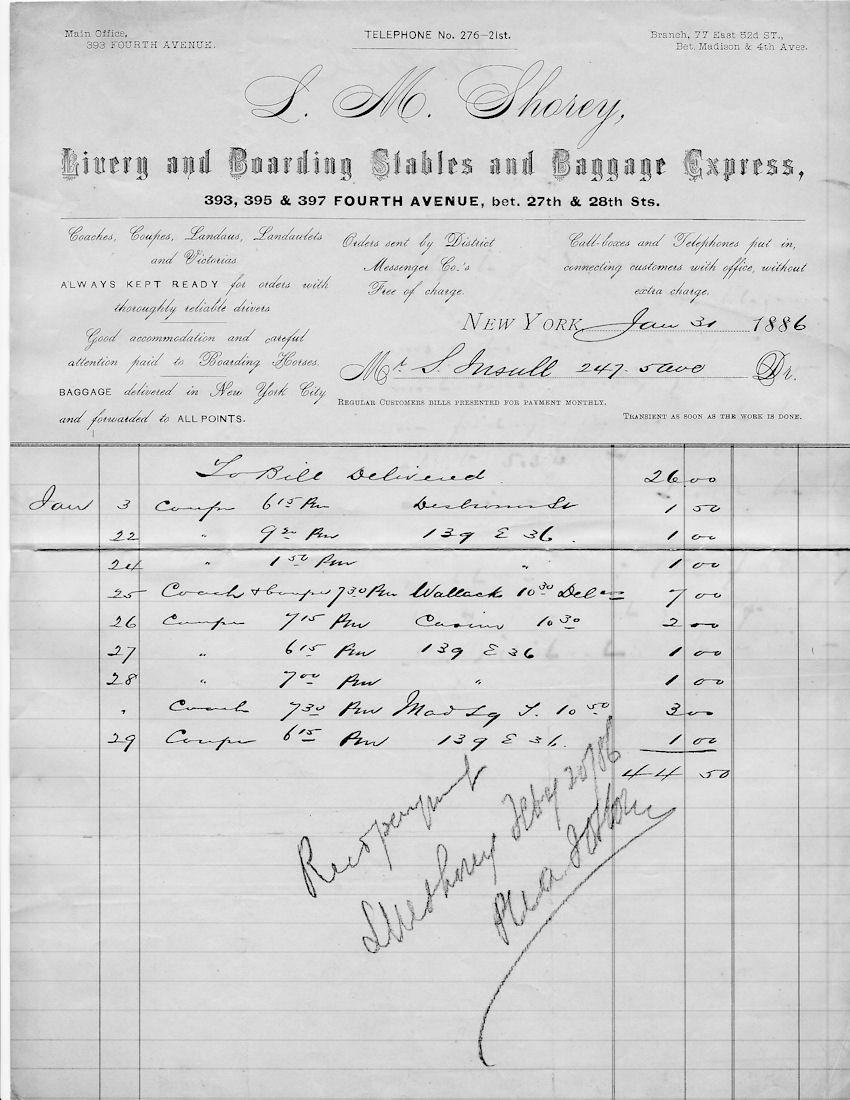 Main Office,
393 FOURTH AVENUE.
TELEPHONE No. 276-21st.
Branch, 77 East 52d ST.,
Bet. Madison & 4th Aves.
L. M. Shorey,
Livery and Boarding Stables and Baggage Express,
393, 395 & 397 FOURTH AVENUE, bet. 27th & 28th Sts.
Coaches, Coupes, Landaus, Landaulets
and Victorias
ALWAYS KEPT READY for orders with
thoroughly reliable drivers
Good accommodation and careful
attention paid to Boarding Horses.
BAGGAGE delivered in New York City
and forwarded to ALL POINTS.
Orders sent by District
Messenger Co.'s
Free of charge.
Call-boxes and Telephones put in,
connecting customers with office, without
extra charge.
NEW YORK, Jan 31 1886
Mr S. Insull 247. 5 ave Dr.
REGULAR CUSTOMERS BILLS PRESENTED FOR PAYMENT MONTHLY.
TRANSIENT AS SOON AS THE WORK IS DONE.
To Bill Delivered 26 00
Jan 3 Coupe 6 15 Pm St 1 50
22 " 9 20 Pm 139 E 36. 1 00
24 " 1 50 Pm " 1 00
25 Coach & Coupe 7 30 Pm Wallack 10 30 Del 7 00
26 Coupe 7 15 Pm Casino 10 30 2 00
27 " 6 15 Pm 139 E 36 1 00
28 " 7 00 Pm " 1 00
" Coach 7 30 Pm Mad Sq T. 10 50 3 00
29 Coupe 6 15 Pm 139 E 36. 1 00
44 50
Recd payment
L M Shorey Feby 20/86
Per